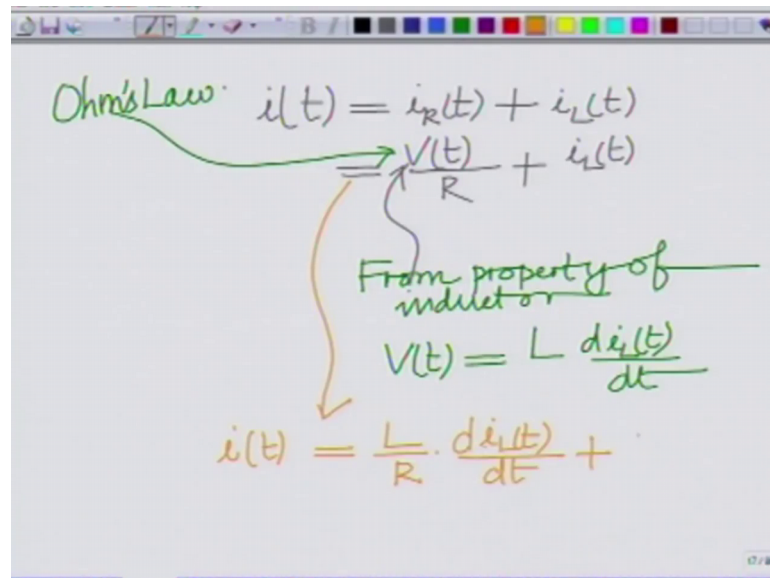 Ohm's Law. i(t) = i_R(t) + i_L(t)
= V(t)/R + i_L(t)
From property of
inductor
V(t) = L di_L(t)/dt
i(t) = L/R . di_L(t)/dt +